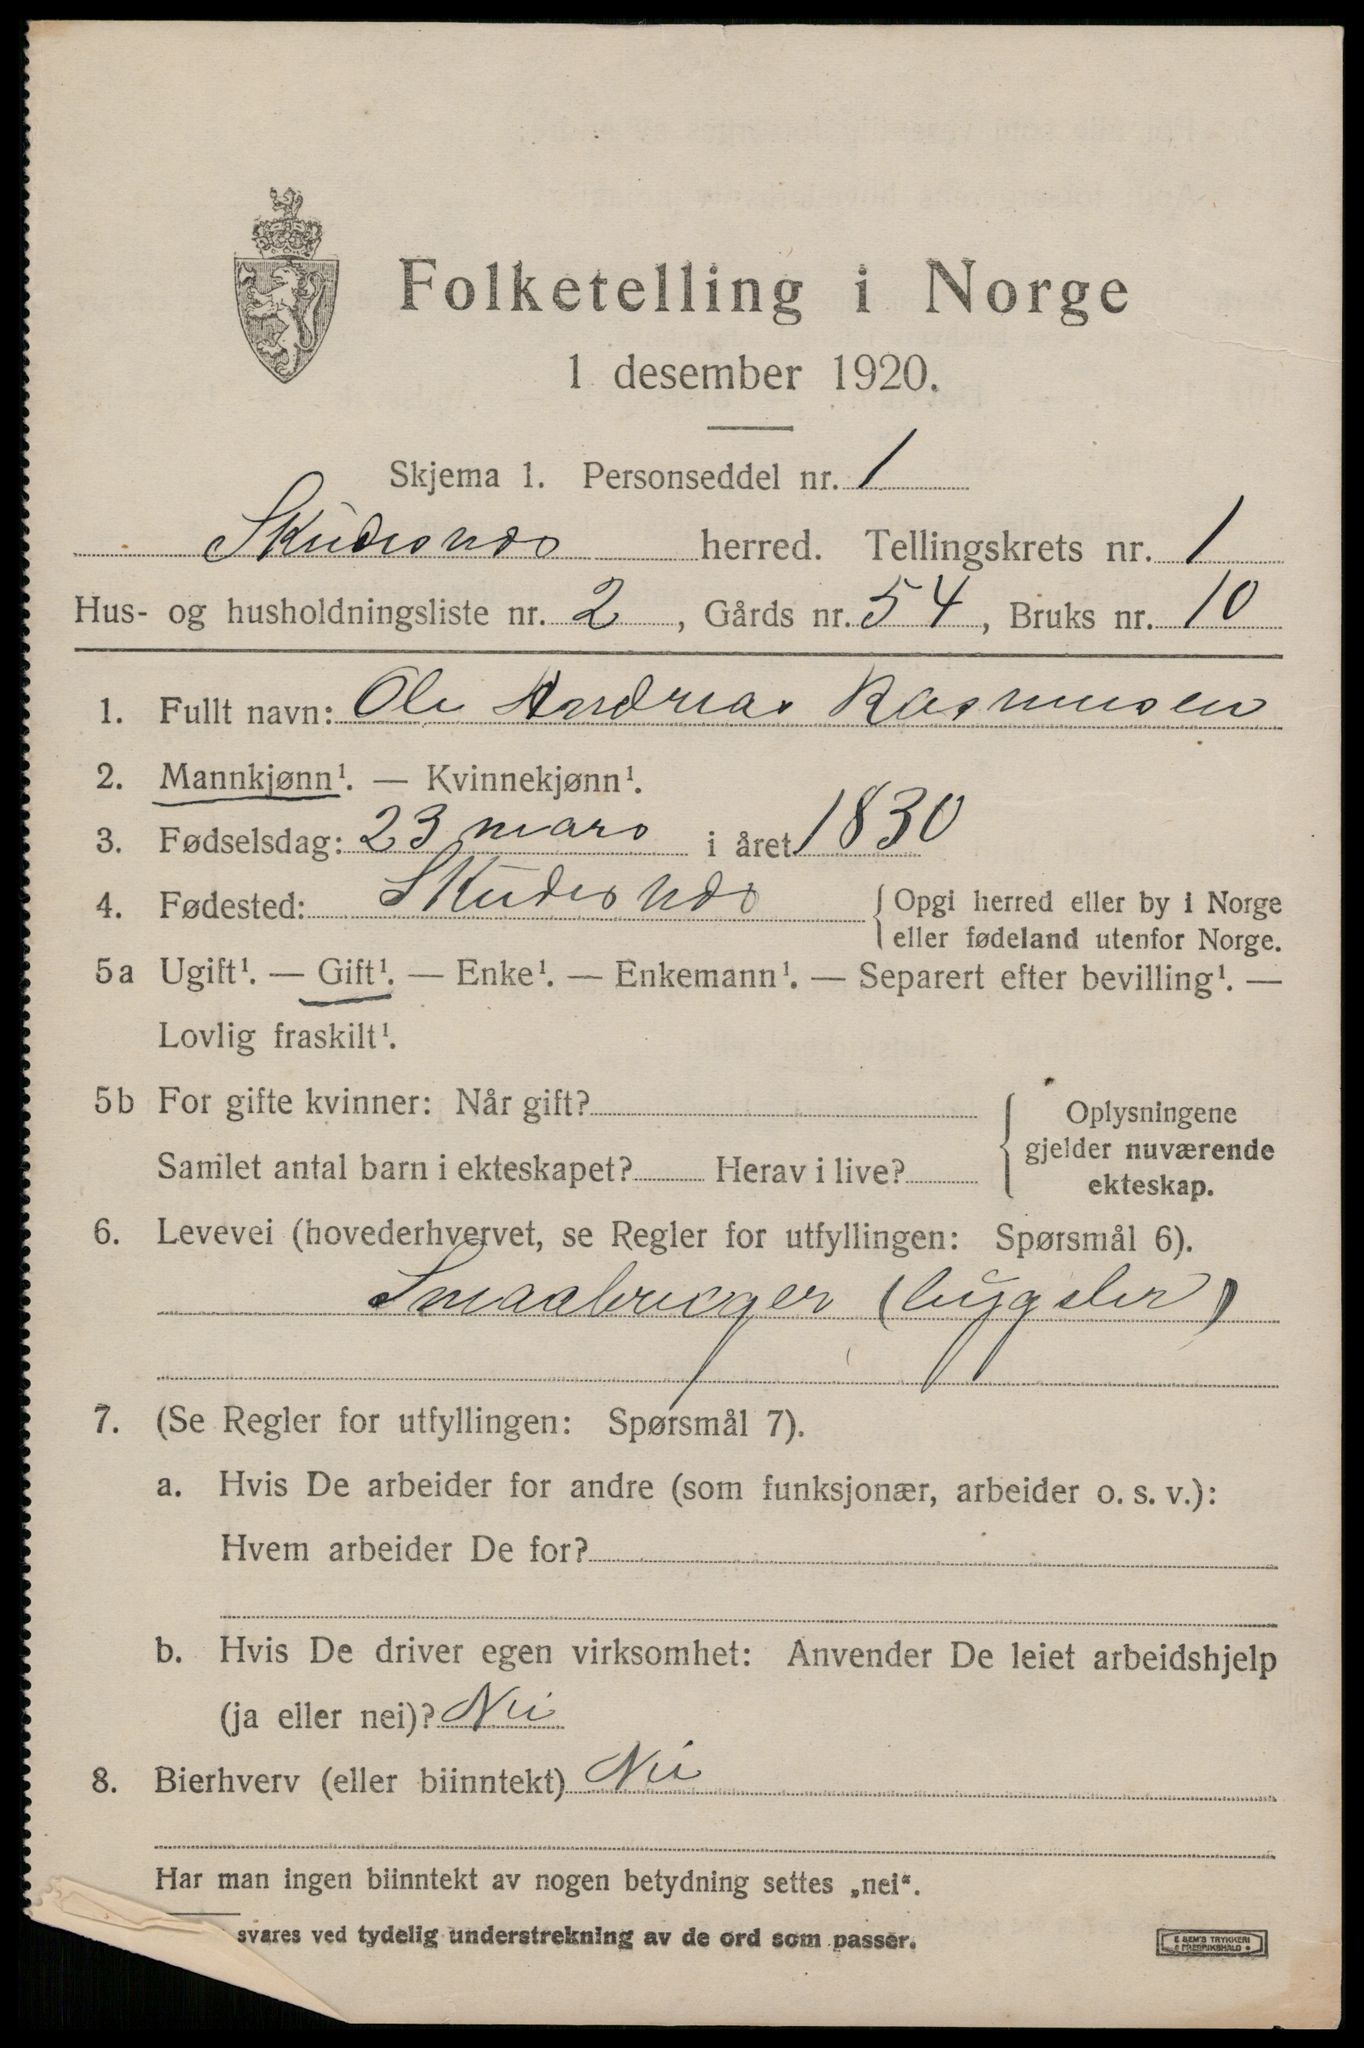 Folketelling i Norge
1 desember 1920.
Skjema 1. Personseddel nr. 1
Skudesnes herred. Tellingskrets nr. 1
Hus- og husholdningsliste nr. 2, Gårds nr. 54, Bruks nr. 10
1. Fullt navn: Ole Andreas Rasmussen
2. Mannkjønn¹. — Kvinnekjønn¹.
3. Fødselsdag: 23 mars i året 1830
4. Fødested: Skudesnes { Opgi herred eller by i Norge
eller fødeland utenfor Norge.
5a Ugift¹. — Gift¹. — Enke¹. — Enkemann¹. — Separert efter bevilling¹. —
Lovlig fraskilt¹.
5b For gifte kvinner: Når gift?
Samlet antal barn i ekteskapet? Herav i live?
{ Oplysningene
gjelder nuværende
ekteskap.
6. Levevei (hovederhvervet, se Regler for utfyllingen: Spørsmål 6).
Smaabruger (bygsler)
7. (Se Regler for utfyllingen: Spørsmål 7).
a. Hvis De arbeider for andre (som funksjonær, arbeider o. s. v.):
Hvem arbeider De for?
b. Hvis De driver egen virksomhet: Anvender De leiet arbeidshjelp
(ja eller nei)? Nei
8. Bierhverv (eller biinntekt) Nei
Har man ingen biinntekt av nogen betydning settes „nei“.
svares ved tydelig understrekning av de ord som passer.
E SEM'S TRYKKERI
FREDRIKSHALD